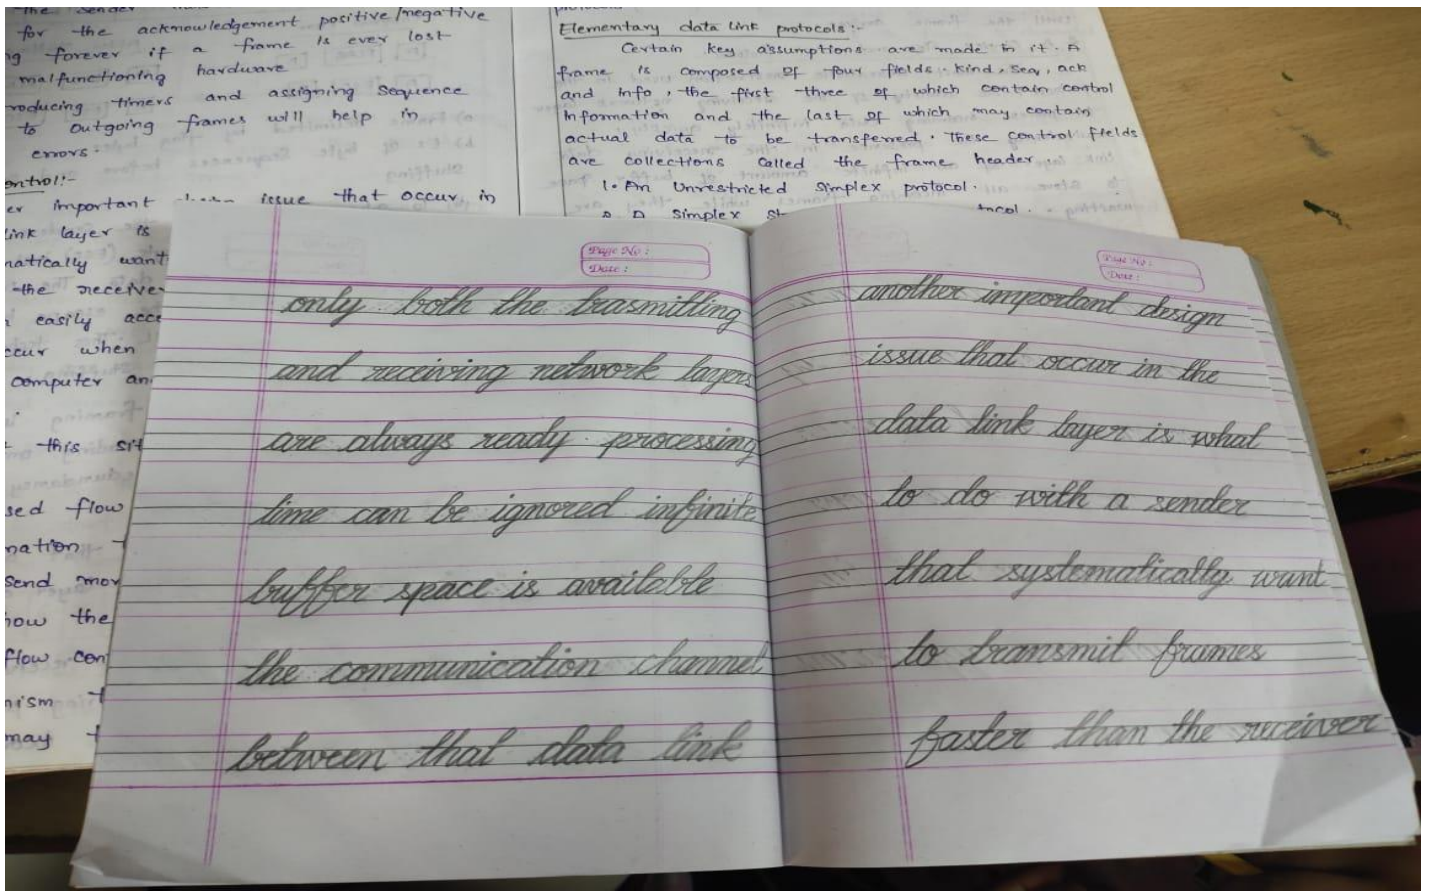 the sender
for the acknowledgement positive/negative
ng forever if a frame is ever lost
malfunctioning hardware
roducing timers and assigning sequence
to outgoing frames will help in
errors.
ontrol:-
er important issue that occur in
link layer is
matically want
the receiver
easily acce
ccur when
computer an
this sit
sed flow
mation
send mor
how the
flow con
nism
may
Elementary data link protocols:-
Certain key assumptions are made in it. A
frame is composed of four fields. kind, seq, ack
and info, the first three of which contain control
information and the last of which may contain
actual data to be transferred. These control fields
are collections called the frame header.
1. An Unrestricted Simplex protocol.
2. A Simplex st ocol.
Page No:
Date:
only both the trasmitting
and receiving network layers
are always ready. processing
time can be ignored infinite
buffer space is available
the communication channel
between that data link
Page No:
Date:
another important design
issue that occur in the
data link layer is what
to do with a sender
that systematically want
to transmit frames
faster than the receiver